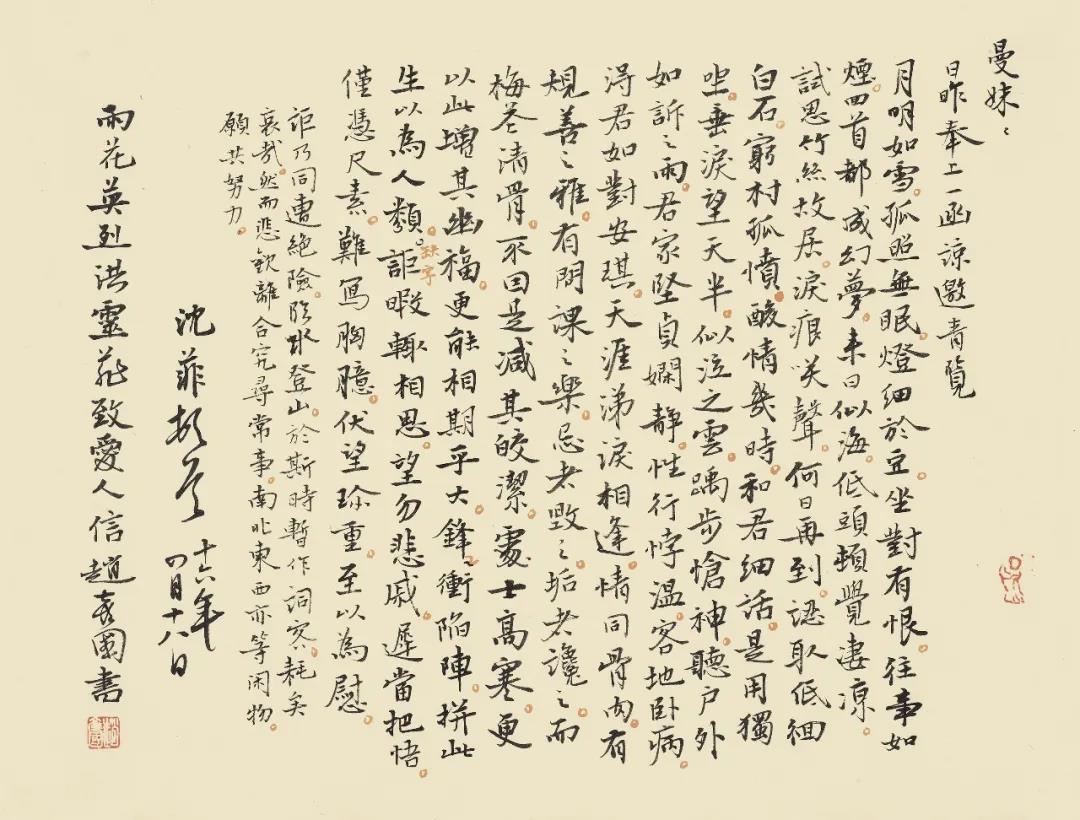 曼妹、
日昨奉上一函諒邀青覽
月明如雪。孤照無眠。燈細於豆。坐對有恨。往事如
煙。回首都成幻夢。來日似海。低頭頓覺凄涼。
試思竹絲故居。淚痕咲聲。何日再到。認取低徊
白石。窮村孤憤。酸情幾時。和君細話。是用獨
坐垂淚。望天半似泣之雲。踽步愴神。聽户外
如訴之雨。君家墜貞嫻静。性行悖温。客地卧病。
得君如對安琪。天涯涕淚相逢。情同骨肉。有
規善之雅。有問課之樂。忌者毁之。垢者讒之。而
梅苍清骨。不因是减其皎潔。處士高寒。更
以此增其幽福。更能相期乎大鋒。衝陷陣。拼此
生以為人類。缺字 詎暇輙相思。望勿悲戚。遲當把悟。
僅憑尺素。難寫胸臆。伏望珍重。至以為慰。
詎乃同遭絶險。臨水登山。於斯時暫作詞客。耗矣
哀哉。然而悲歡離合。究尋常事。南北東西。亦等闲物。
願共努力。
沈菲 十六年
四月十八日
雨花英烈洪靈菲致愛人信 趙喜國書